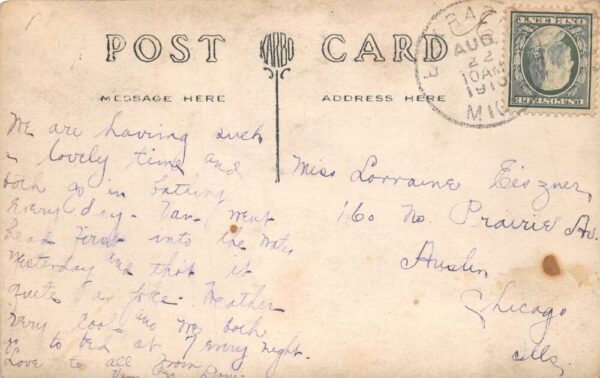 POST KARBO CARD
MESSAGE HERE
ADDRESS HERE
AUG
22
10 AM
MIC
U.S. POSTAGE
ONE CENT
We are having such
a lovely time and
both go in bathing
every day - Van went
head first into the water
yesterday and thot it
quite a joke. Weather
very cool and we both
go to bed at 7 every night.
Love to all from
Miss Lorraine Eiszner
160 No. Prairie Av.
Austin
Chicago
Ills.